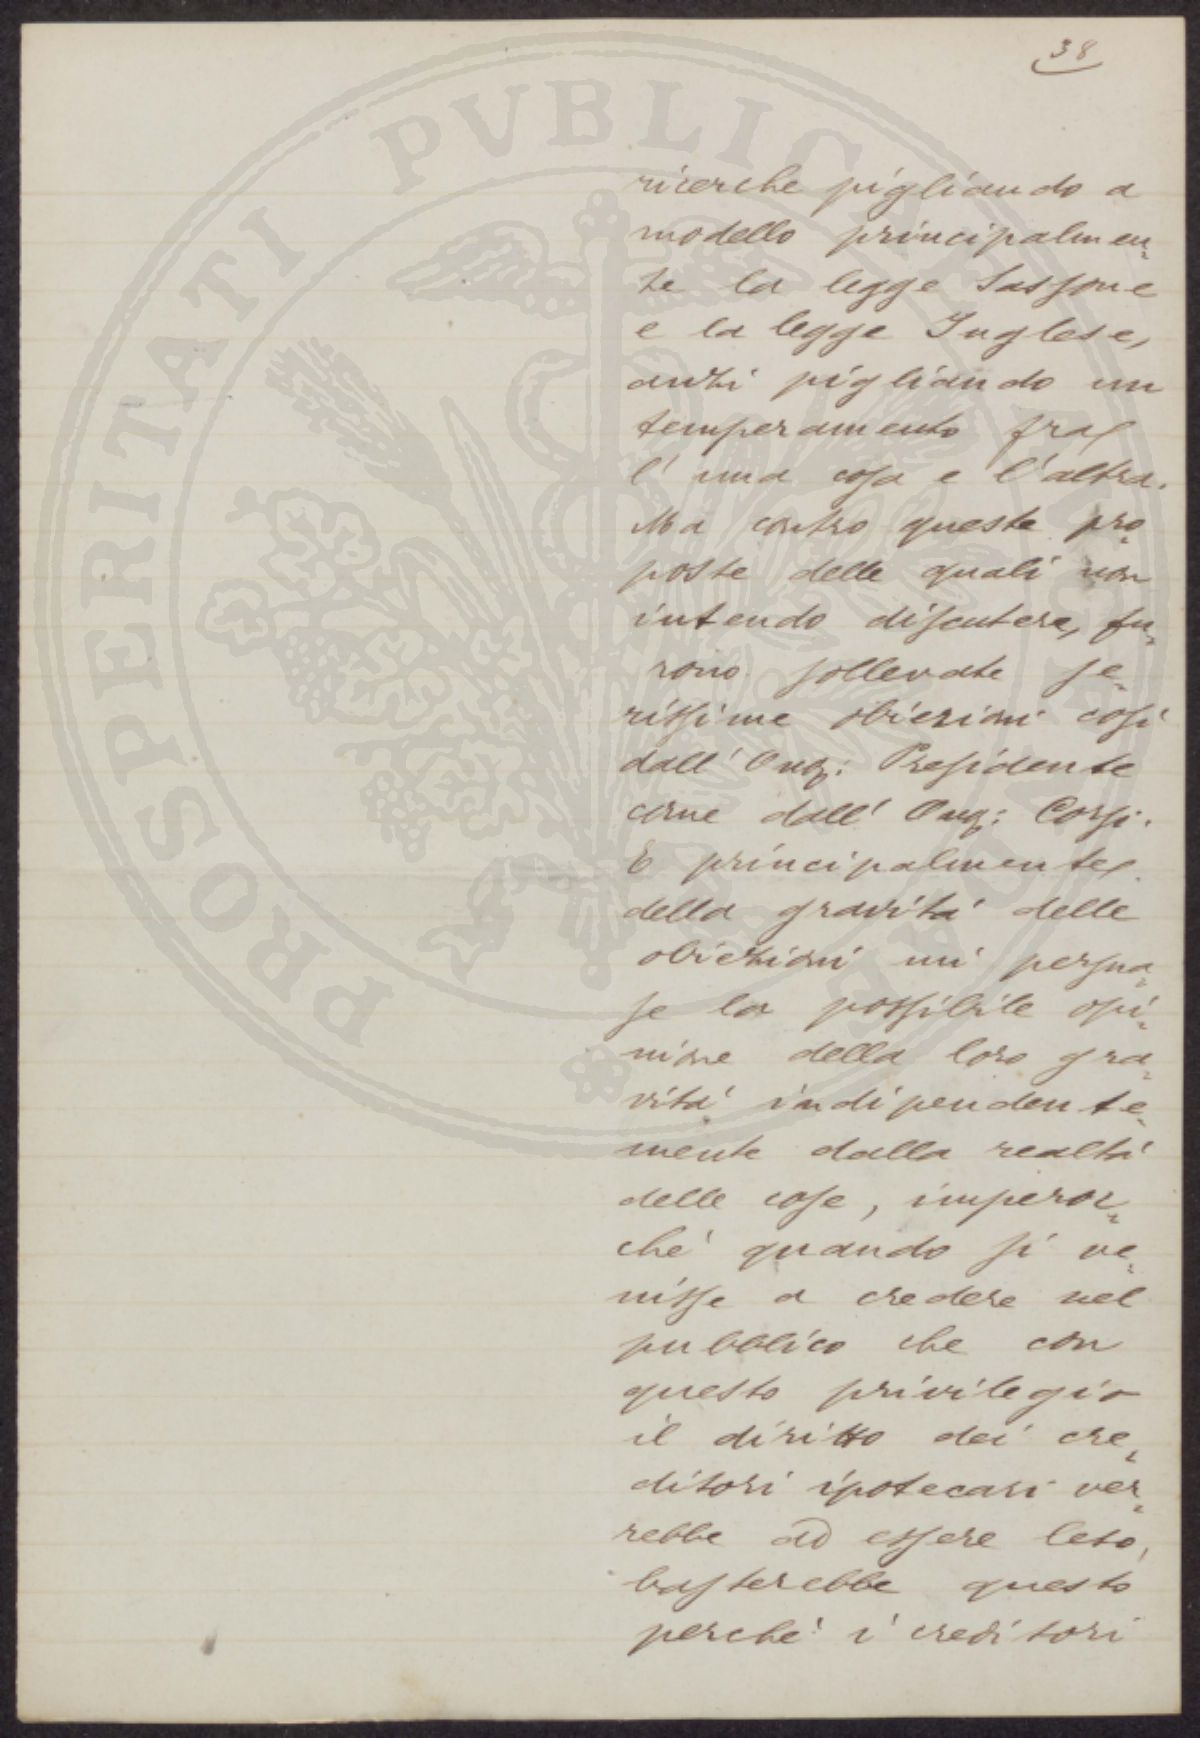 38
PROSPERITATI PVBLICAE
ricerche pigliando a
modello principalmen=
te la legge Sassone
e la legge Inglese,
anzi pigliando un
temperamento fra
l'una cosa e l'altra.
Ma contro queste pro=
poste delle quali non
intendo discutere, fu=
rono sollevate se=
rissime obiezioni così
dall' Onq: Presidente
come dall' Onq: Corsi.
E principalmente
della gravità delle
obiezioni mi persua=
se la possibile opi=
nione della loro gra=
vità indipendente=
mente dalla realtà
delle cose, imperoc=
ché quando si ve=
nisse a credere nel
pubblico che con
questo privilegio
il diritto dei cre=
ditori ipotecari ver=
rebbe ad essere leso,
basterebbe questo
perché i creditori